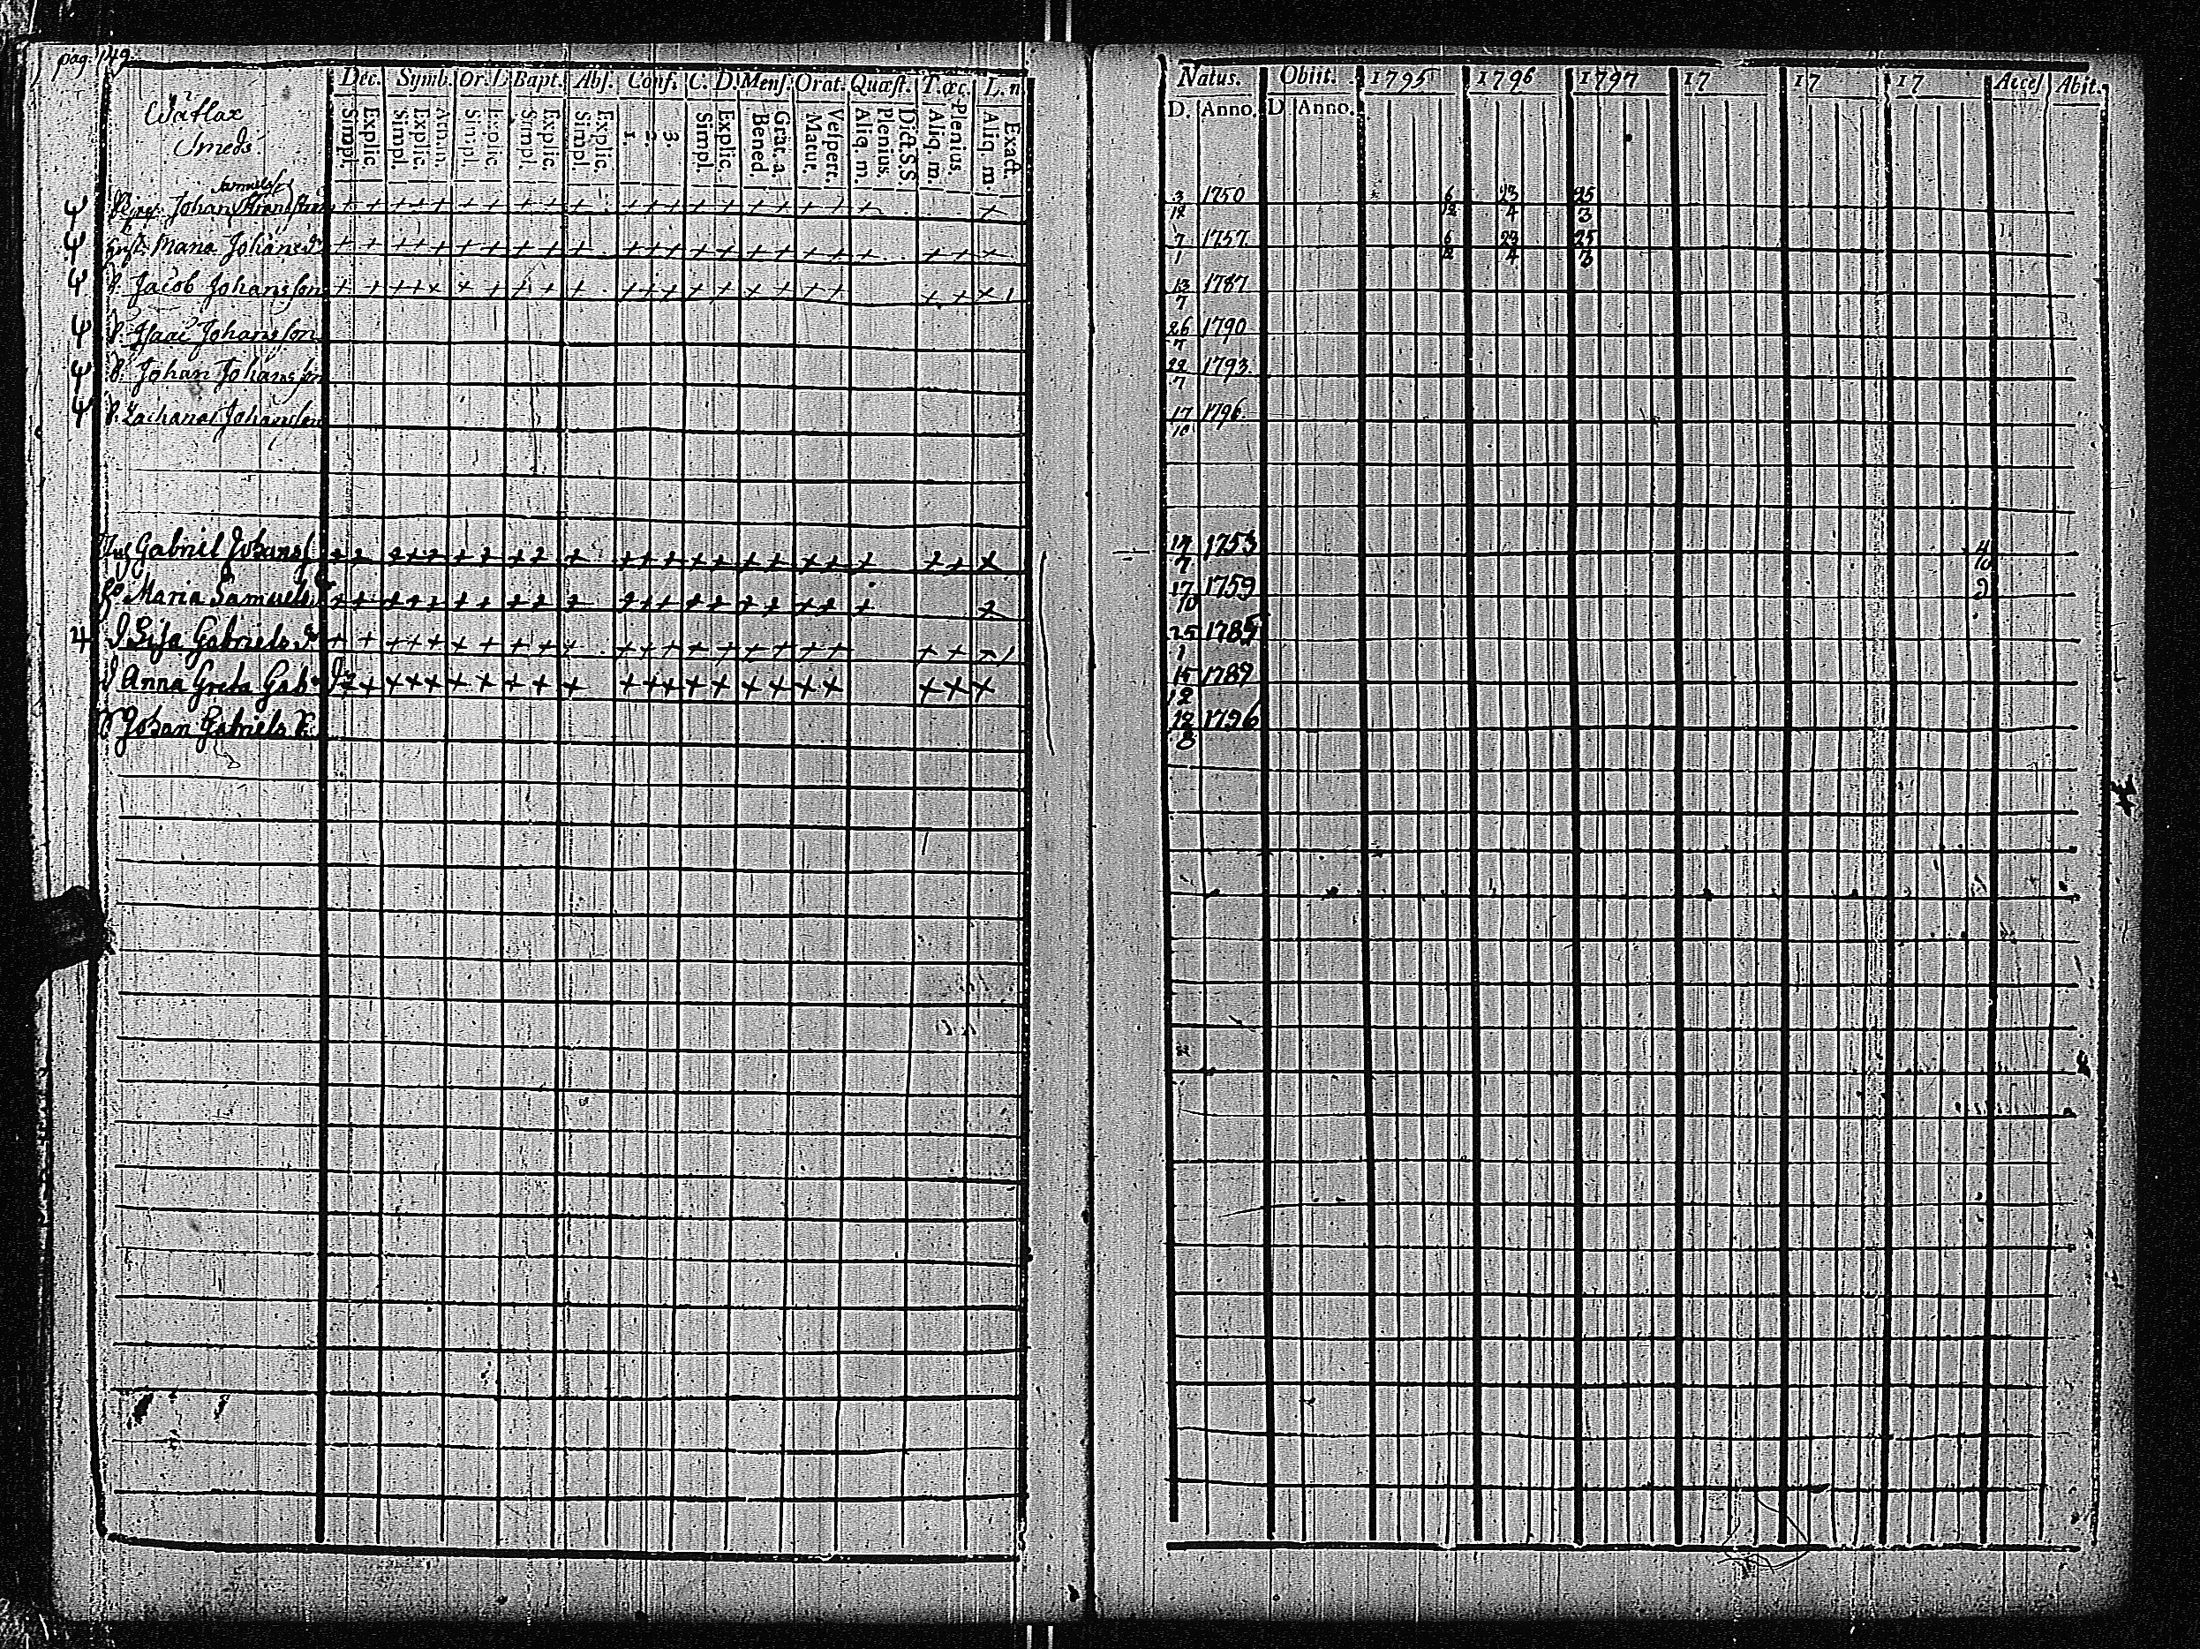 pag. 149.
Wätlax
Smeds
Dec. Symb. Or. D. Bapt. Abs. Conf. C. D. Mens. Orat. Quæst. T. œc. L. n
Simpl. Explic. Simpl. Explic. Athan. Simpl. Explic. Simpl. Explic. Simpl. Explic. 1. 2. 3. Simpl. Explic. Bened. Grat. a. Matut. Vespert. Aliq. m. Plenius. Dict. S. S. Aliq. m. Plenius. Aliq. m. Exact.
Natus. Obiit. 1795 1796 1797 17 17 17 Acces Abit.
D. Anno. D Anno.
Samuelss
Johan 3 12 1750 6 12 23 4 25 3
Hust. Maria Johans dr 7 1 1757. 6 12 23 4 25 3
S. Jacob Johansson 13 7 1787
S. Isac Johansson 26 7 1790
S. Johan Johansson 22 7 1793.
S. Zacharias Johansson 17 10 1796.
Gabriel Johanss 7 1753 4 10
Maria Samuels 17 10 1759 2
4 D Lisa Gabriels dr 25 1 1785
D Anna Greta Gab Dr 15 12 1789
Johan Gabriels 12 8 1796